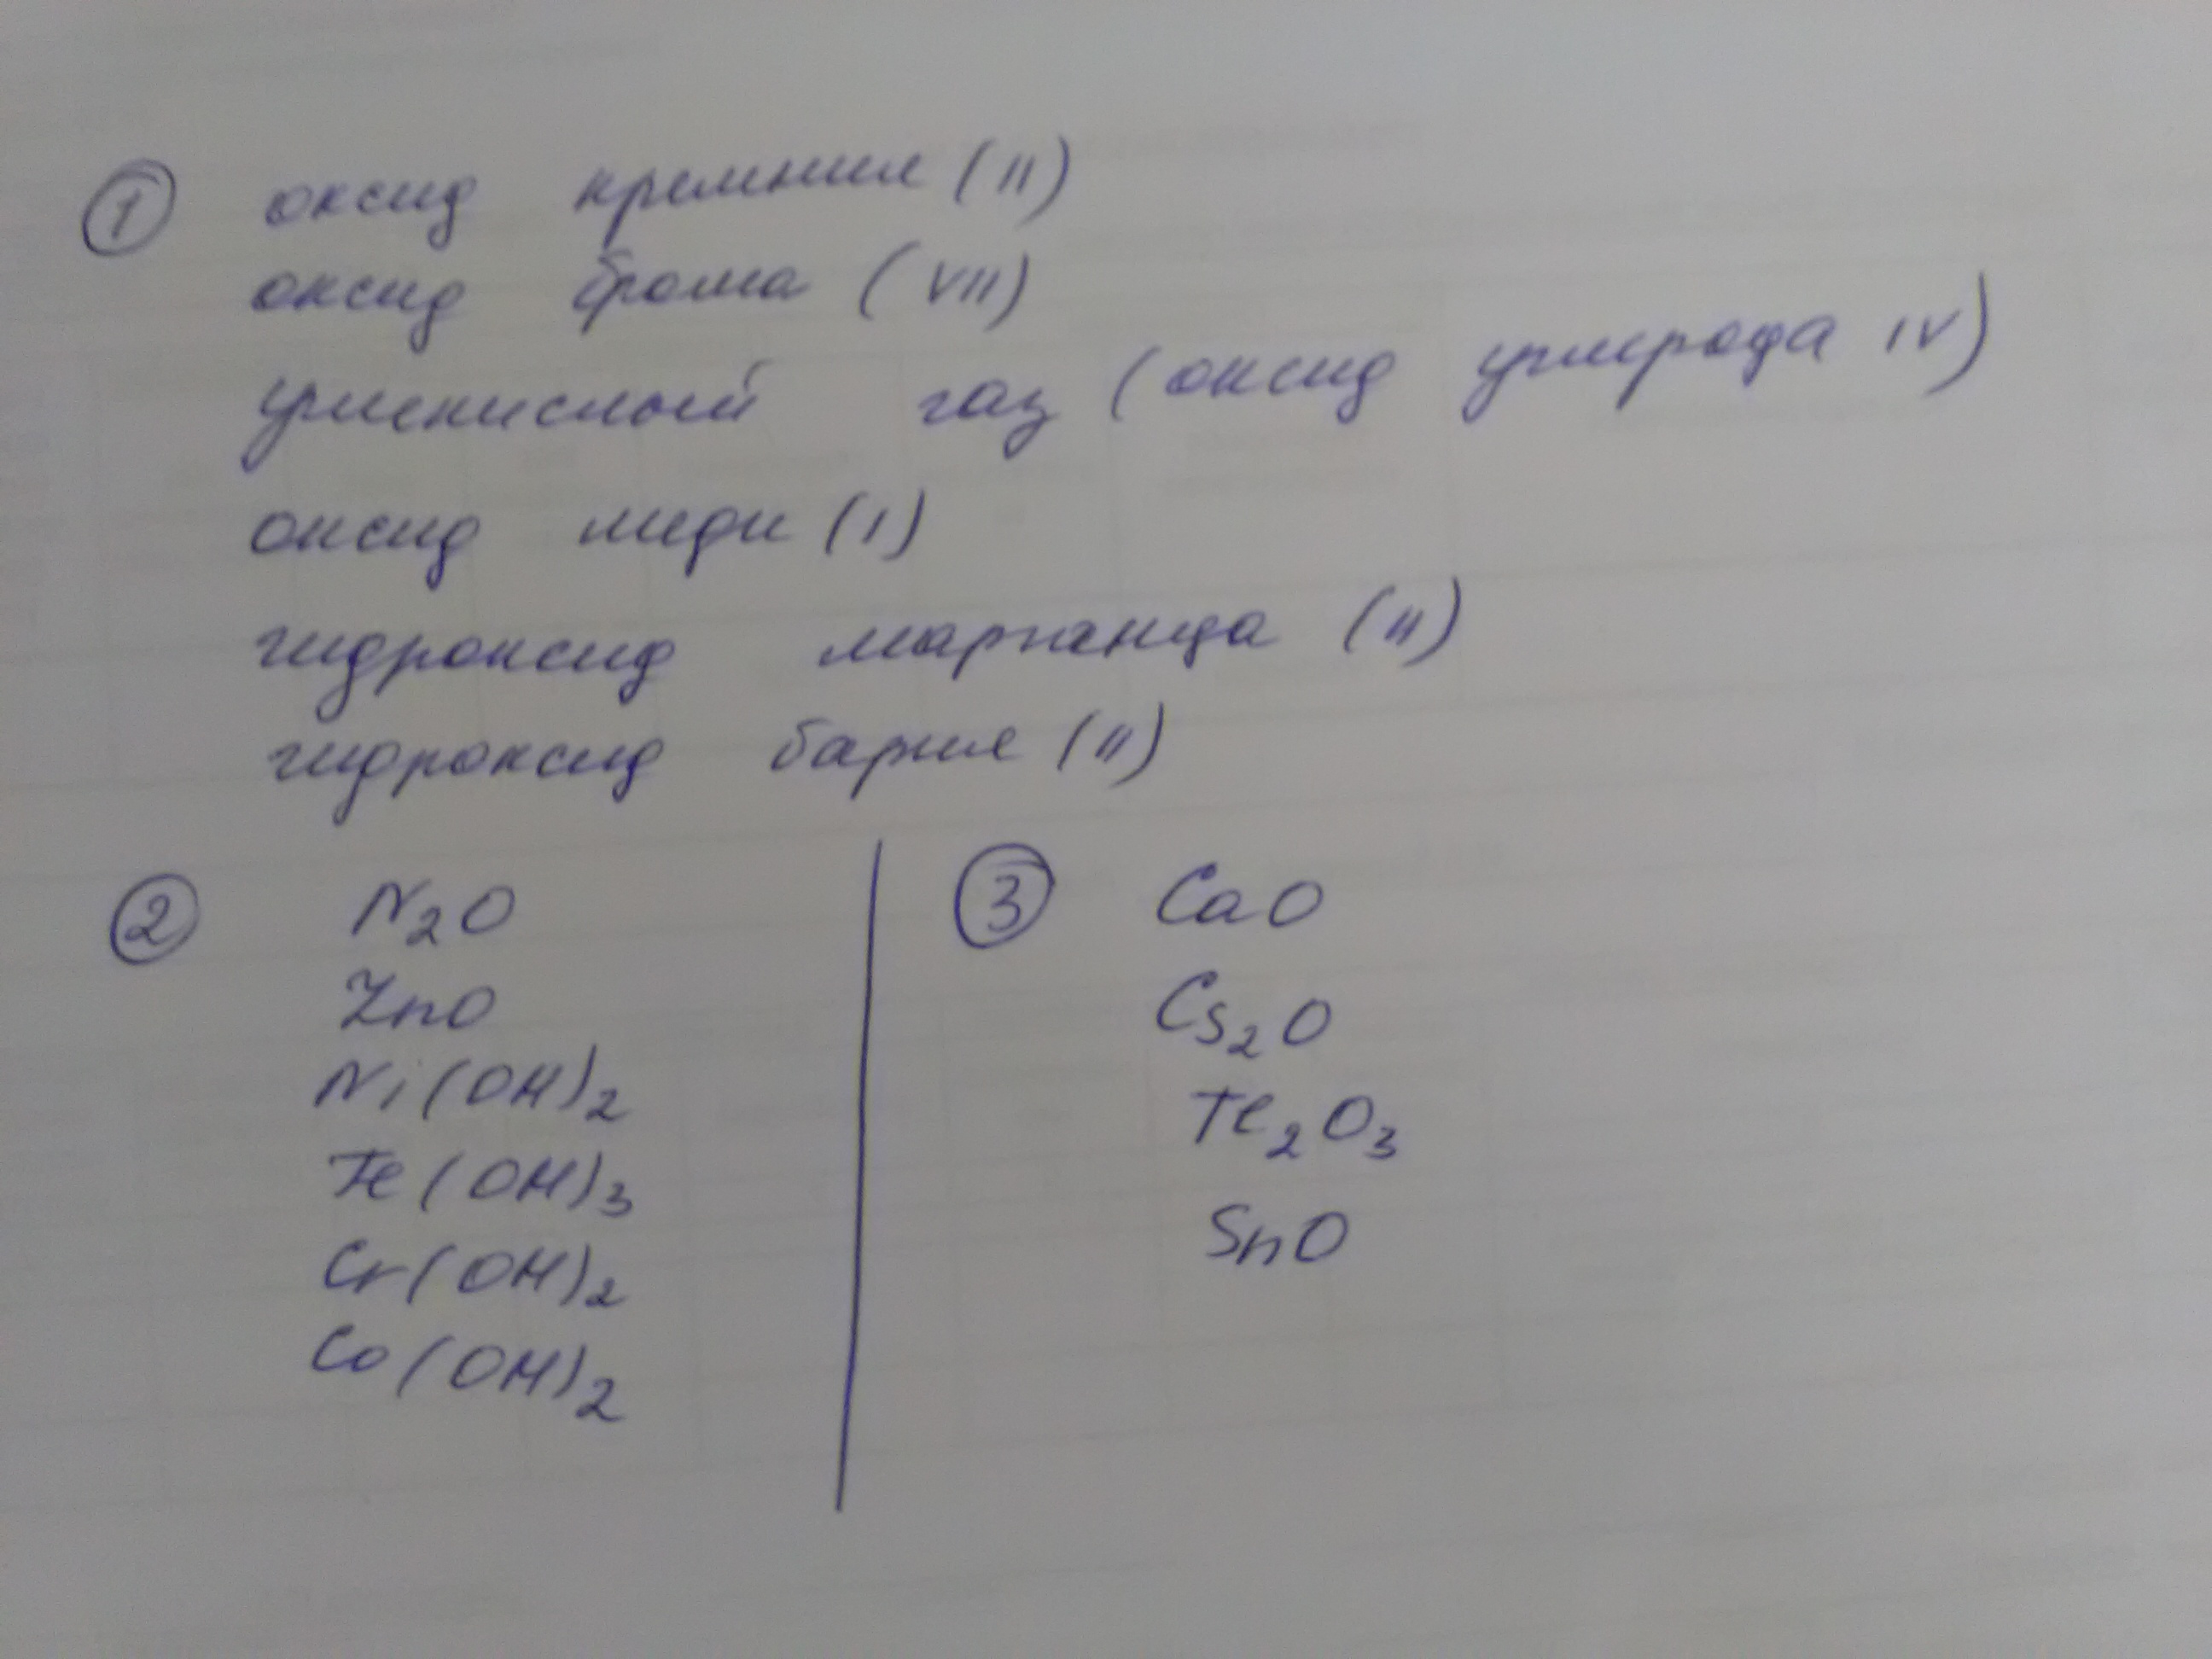 ① оксид кремния (II)
оксид брома (VII)
углекислый газ (оксид углерода IV)
оксид меди (I)
гидроксид марганца (II)
гидроксид бария (II)
② N₂O
ZnO
Ni(OH)₂
Fe(OH)₃
Cr(OH)₂
Co(OH)₂
③ CaO
Cs₂O
Fe₂O₃
SnO